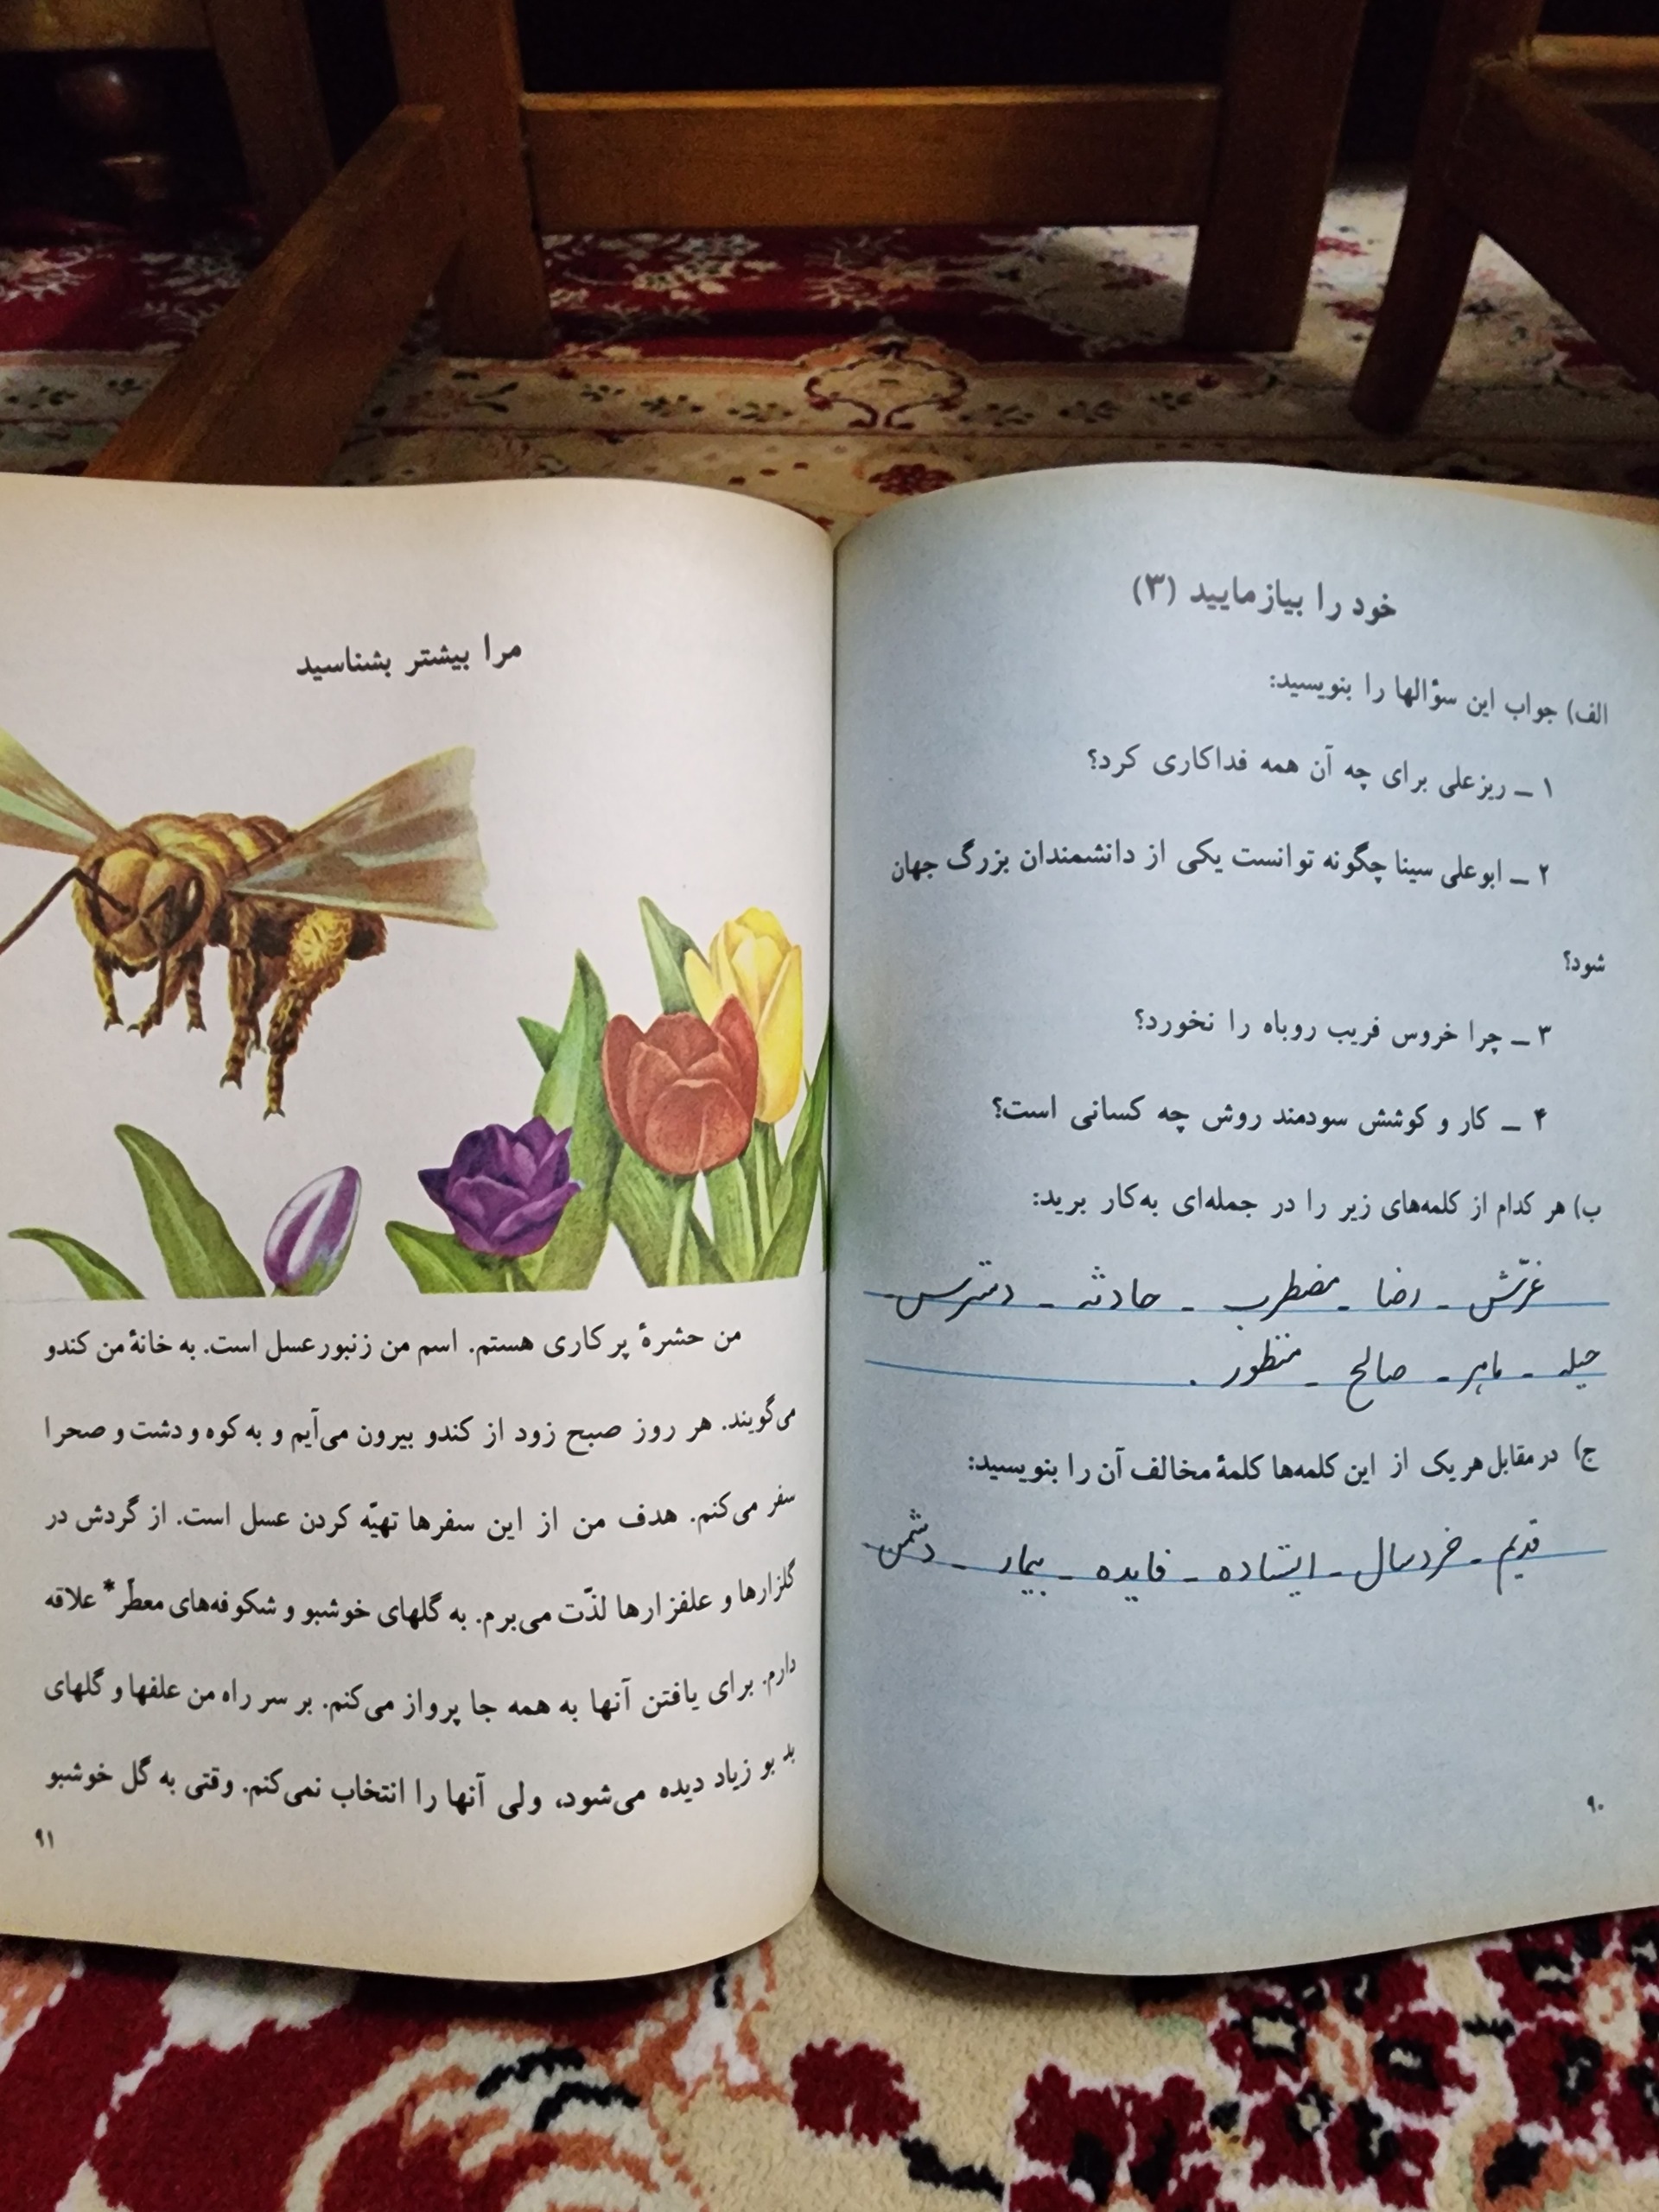 خود را بیازمایید (۳)
الف) جواب این سؤالها را بنویسید:
۱ ــ ریزعلی برای چه آن همه فداکاری کرد؟
۲ ــ ابوعلی سینا چگونه توانست یکی از دانشمندان بزرگ جهان
شود؟
۳ ــ چرا خروس فریب روباه را نخورد؟
۴ ــ کار و کوشش سودمند روش چه کسانی است؟
ب) هر کدام از کلمه‌های زیر را در جمله‌ای به‌کار برید:
غرّش ـ رضا ـ مضطرب ـ حادثه ـ دسترس ـ
حیله ـ ماهر ـ صالح ـ منظور .
ج) در مقابل هر یک از این کلمه‌ها کلمهٔ مخالف آن را بنویسید:
قدیم ـ خردسال ـ ایستاده ـ فایده ـ بیمار ـ دشمن
۹۰
مرا بیشتر بشناسید
من حشرهٔ پر کاری هستم. اسم من زنبور عسل است. به خانهٔ من کندو
می‌گویند. هر روز صبح زود از کندو بیرون می‌آیم و به کوه و دشت و صحرا
سفر می‌کنم. هدف من از این سفرها تهیّه کردن عسل است. از گردش در
گلزارها و علفزارها لذّت می‌برم. به گلهای خوشبو و شکوفه‌های معطّر* علاقه
دارم. برای یافتن آنها به همه جا پرواز می‌کنم. بر سر راه من علفها و گلهای
بد بو زیاد دیده می‌شود، ولی آنها را انتخاب نمی‌کنم. وقتی به گل خوشبو
۹۱